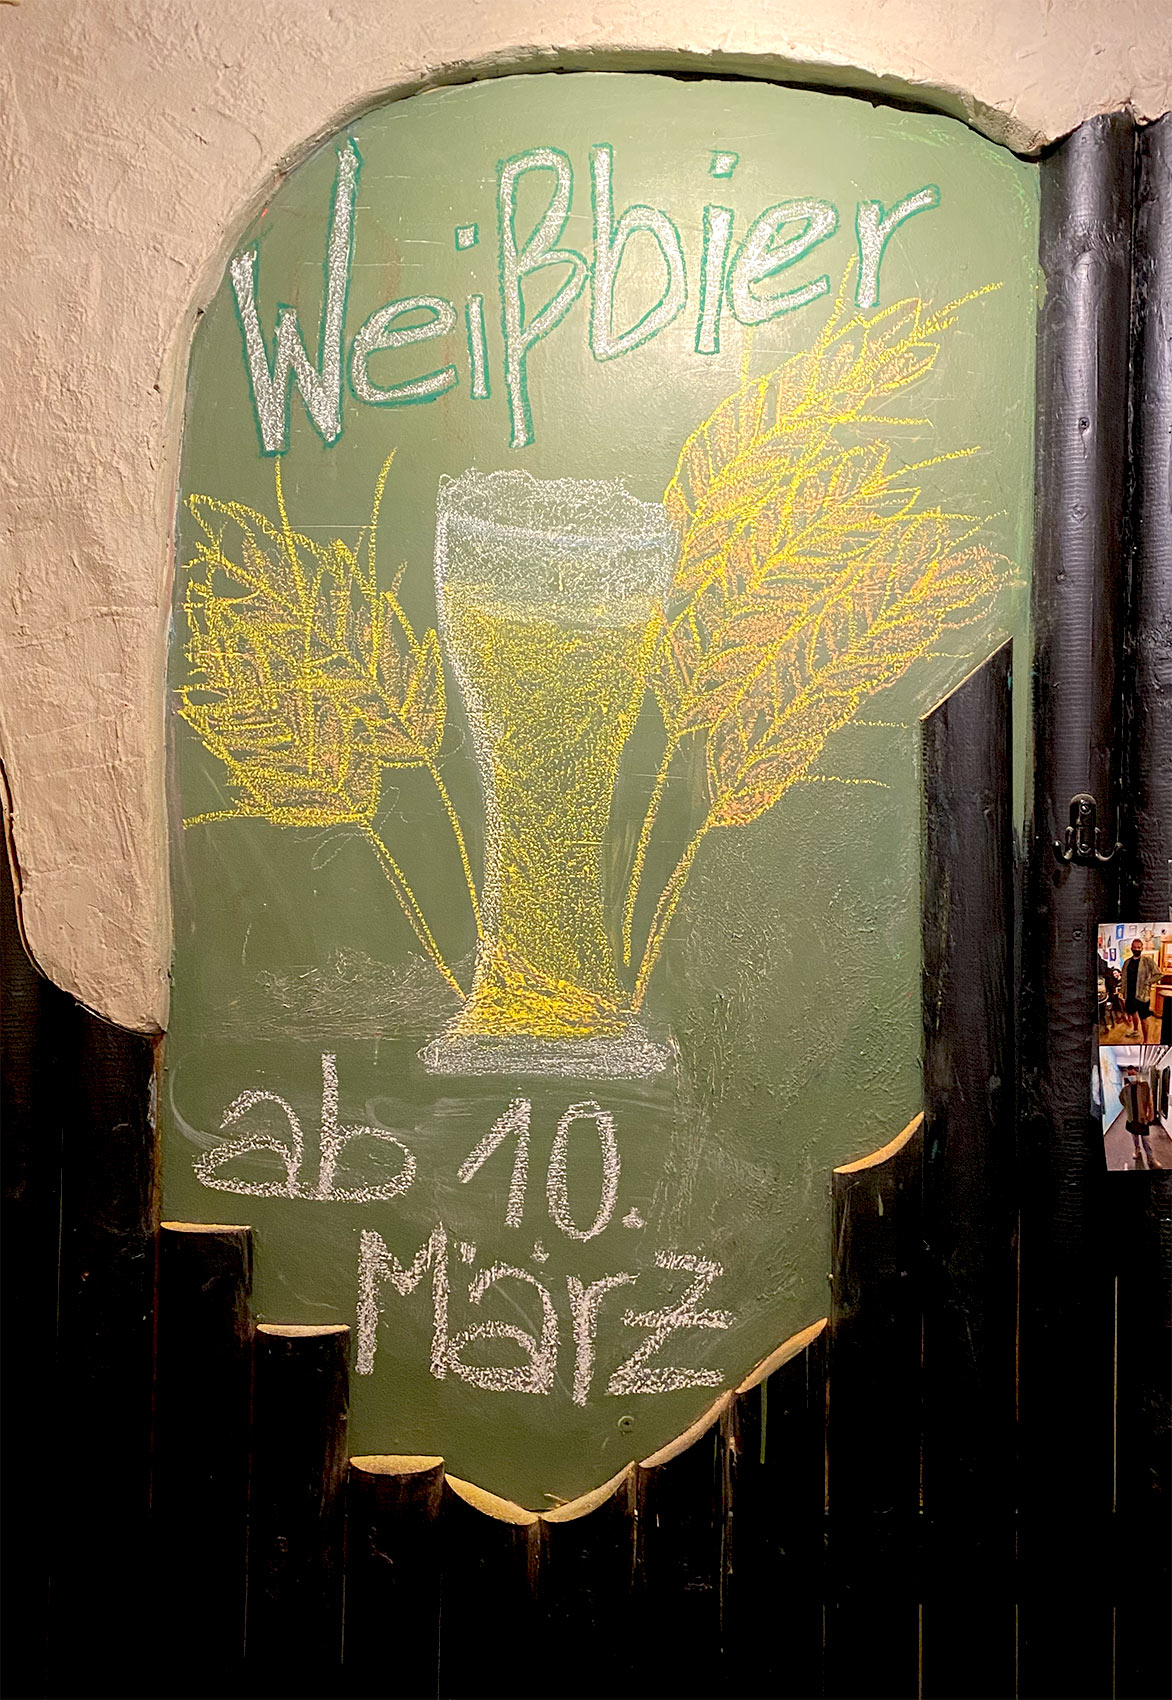 Weißbier
ab 10.
März